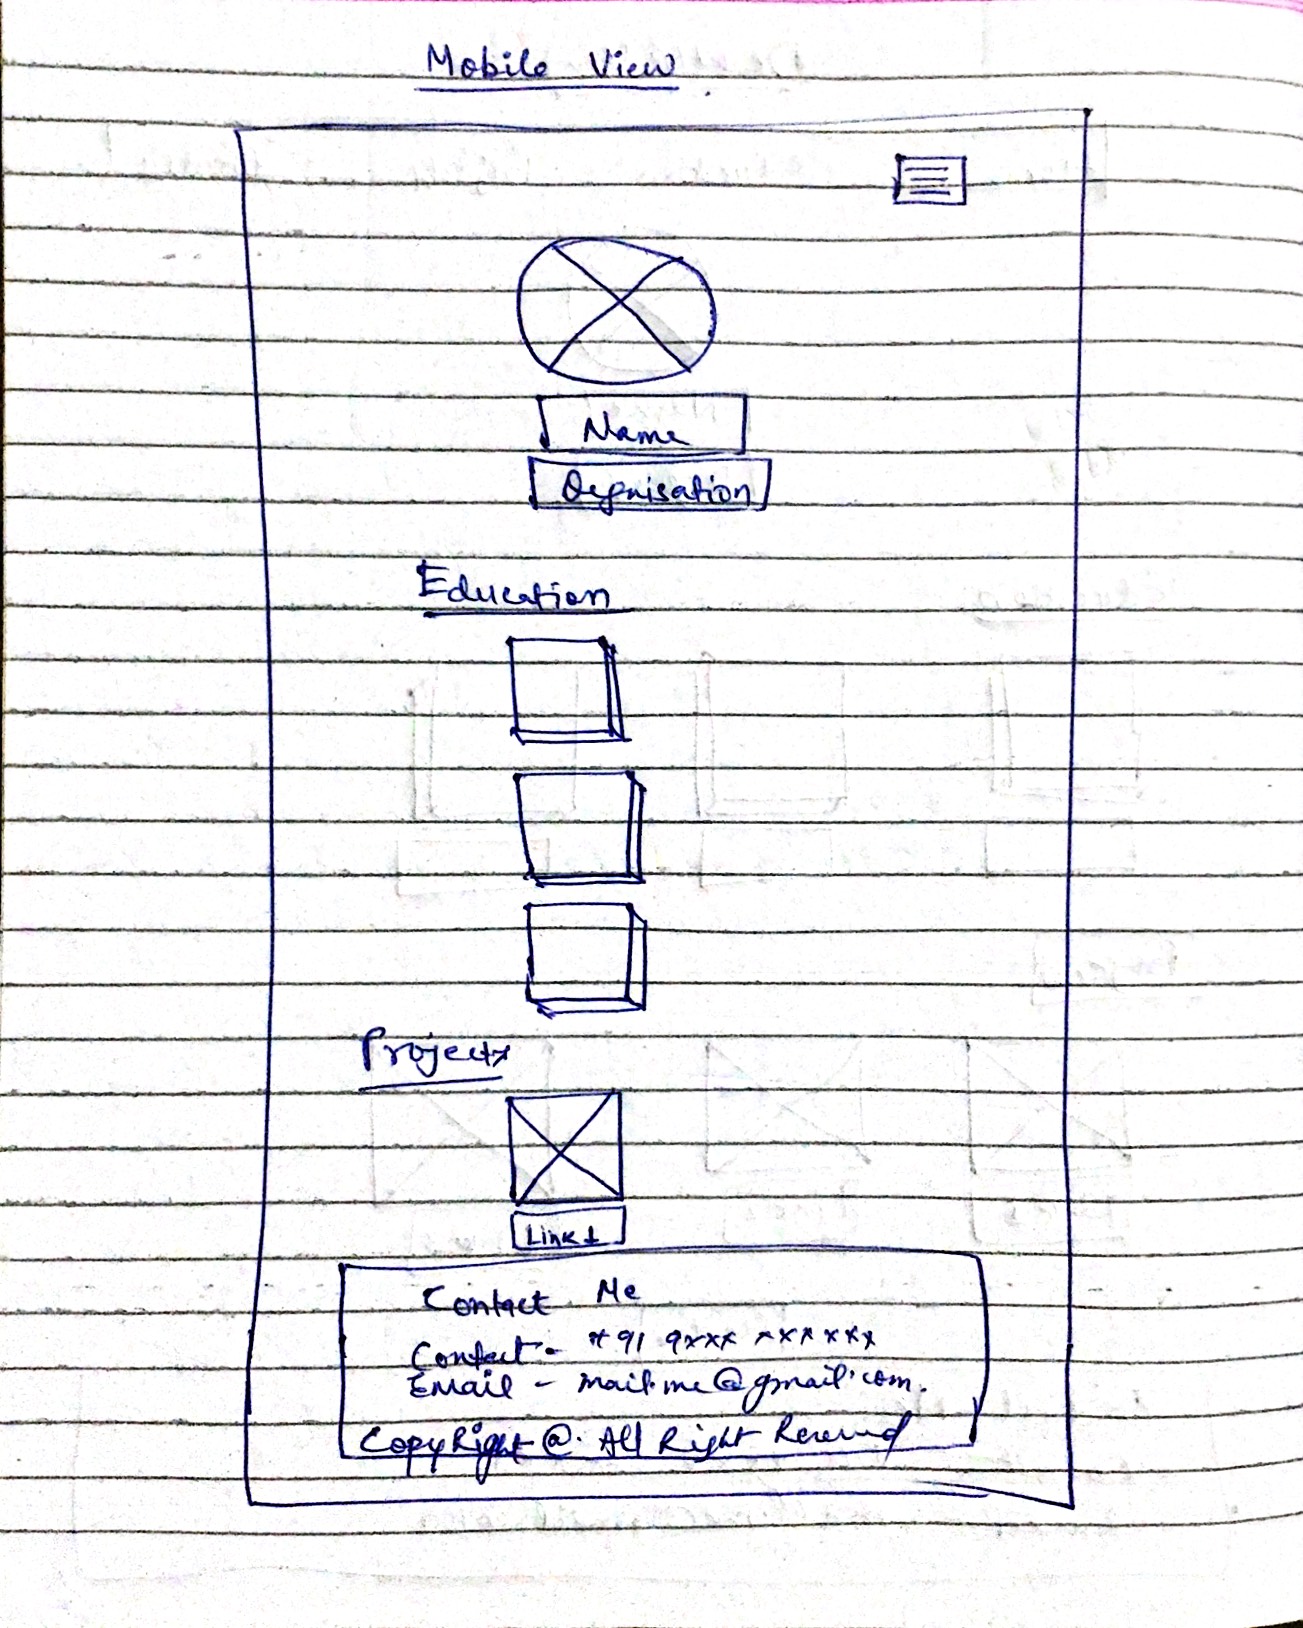 Mobile View
Name
Orgnisation
Education
Projects
Link 1
Contact Me
Contact - +91 9xxx xxxxxx
Email - mail.me@gmail.com.
CopyRight @. All Right Reserved